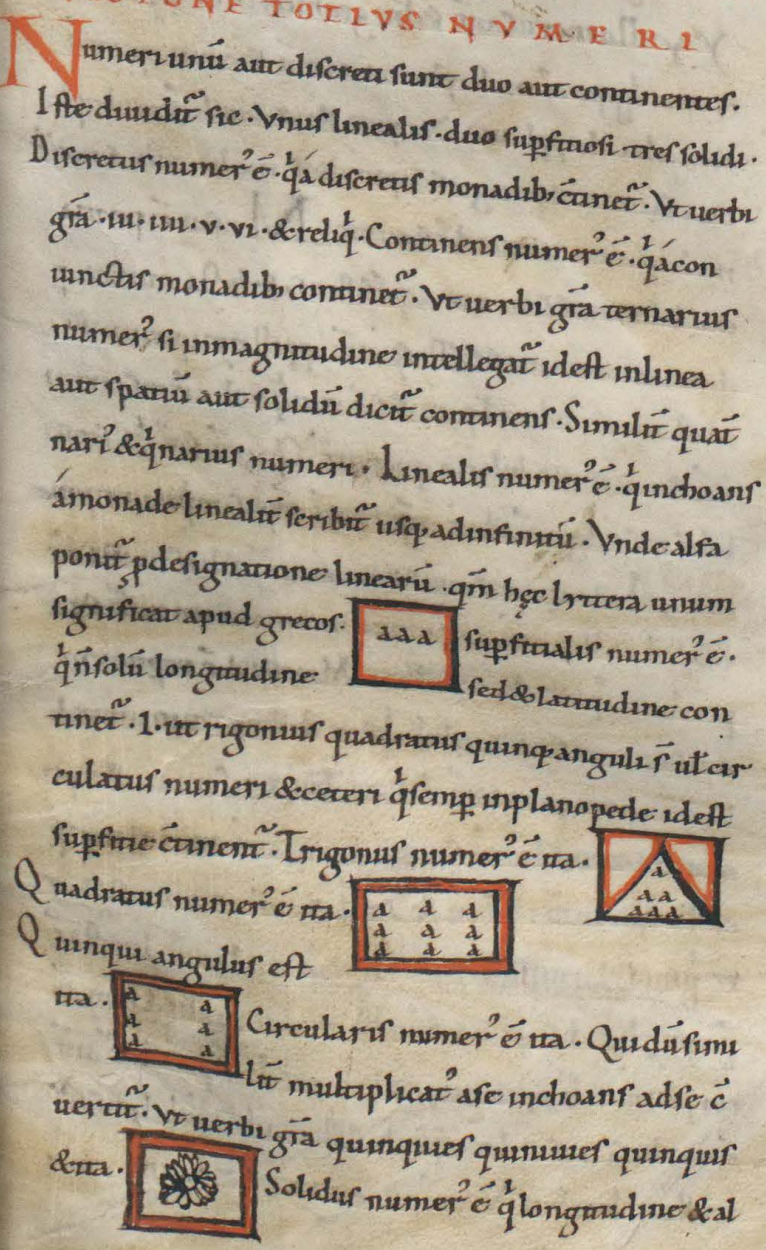 TIONE TOTIVS NVMERI
Numeri unū aut discreti sunt duo aut continentes.
Iste diuidit̃ sic. Vnus linealis. duo sup̱fitiosi tres solidi.
Discretus numer᾿ ē. qͥ á discretis monadib; c̄tinet̃. Vt uerbi
gr̄a. iii. iiii. v. vi. & reliq̇. Continens numer᾿ ē. qͥ á con
iunctis monadib; continet̃. Vt uerbi gr̄a ternarius
numer᾿ si inmagnitudine intellegat̃ idest inlinea
aut spatiū aut solidū dicit̃ continens. Similit̄ quat̄
nari᾿ & qͥnarius numeri. Linealis numer᾿ ē. qͥ inchoans
ámonade linealit̄ scribit̃ usq; adinfinitū. Vnde alfa
ponit̃ ꝓdesignatione linearū. qm̄ hęc lyttera unum
significat apud grecos.
a a a
sup̱fitialis numer᾿ ē.
qͥ n̄ solū longitudine
sed & latitudine con
tinet̃. I. ut rigonius quadratus quinq; anguli s̄ ul̄ cir
culatus numeri & ceteri qͥ semp̱ inplano pede idest
sup̱fitie c̄tinent̃. Trigonus numer᾿ ē ita.
a
a a
a a a
Quadratus numer᾿ ē ita.
a a a
a a a
a a a
Quinqui angulus est
ita.
a a
a a
a a
Circularis numer᾿ ē ita. Qui dū simi
lit̄ multiplicat᾿ ase inchoans adse c̄
uertit̃. Vt uerbi gr̄a quinquies quiniuies quinquis
& ita.
Solidus numer᾿ ē qͥ longitudine & al